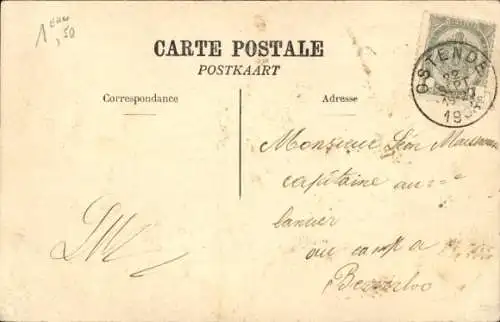 1 euro
,50
CARTE POSTALE
POSTKAART
Correspondance
Adresse
OSTENDE
22
SEPT
19
Monsieur Léon
capitaine au
lancier
au camp de
Beverloo